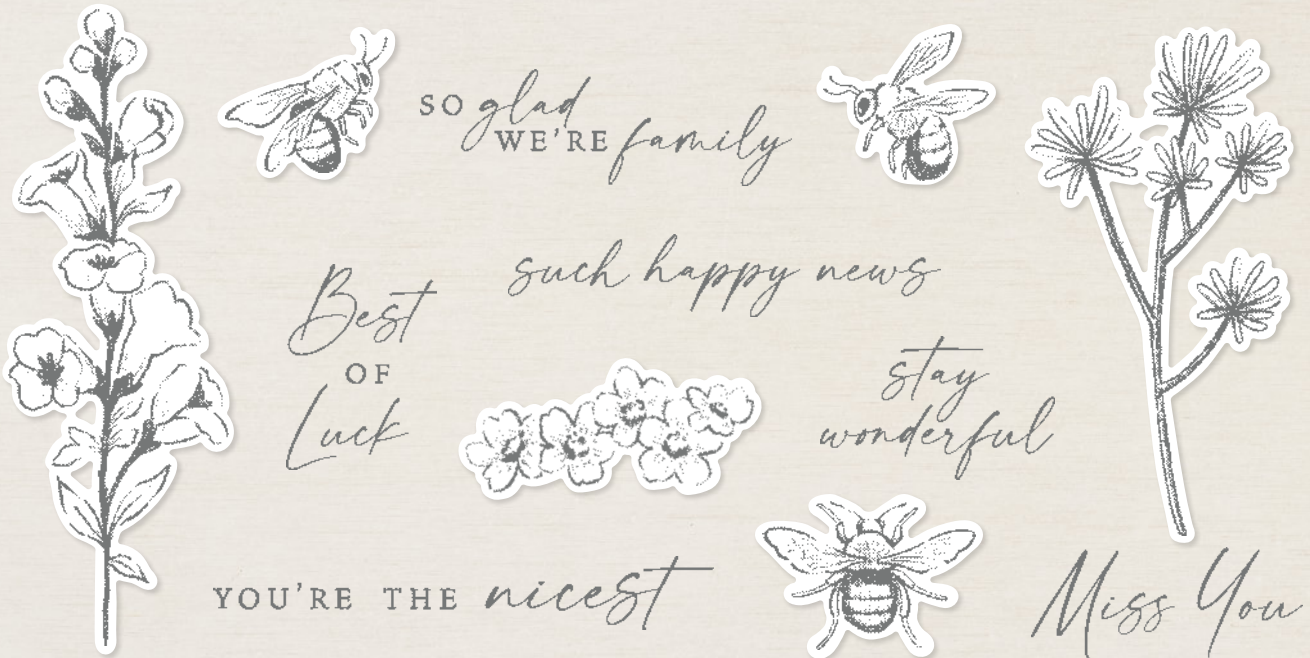 so glad
we're family
such happy news
Best
of
Luck
stay
wonderful
you're the nicest
Miss You